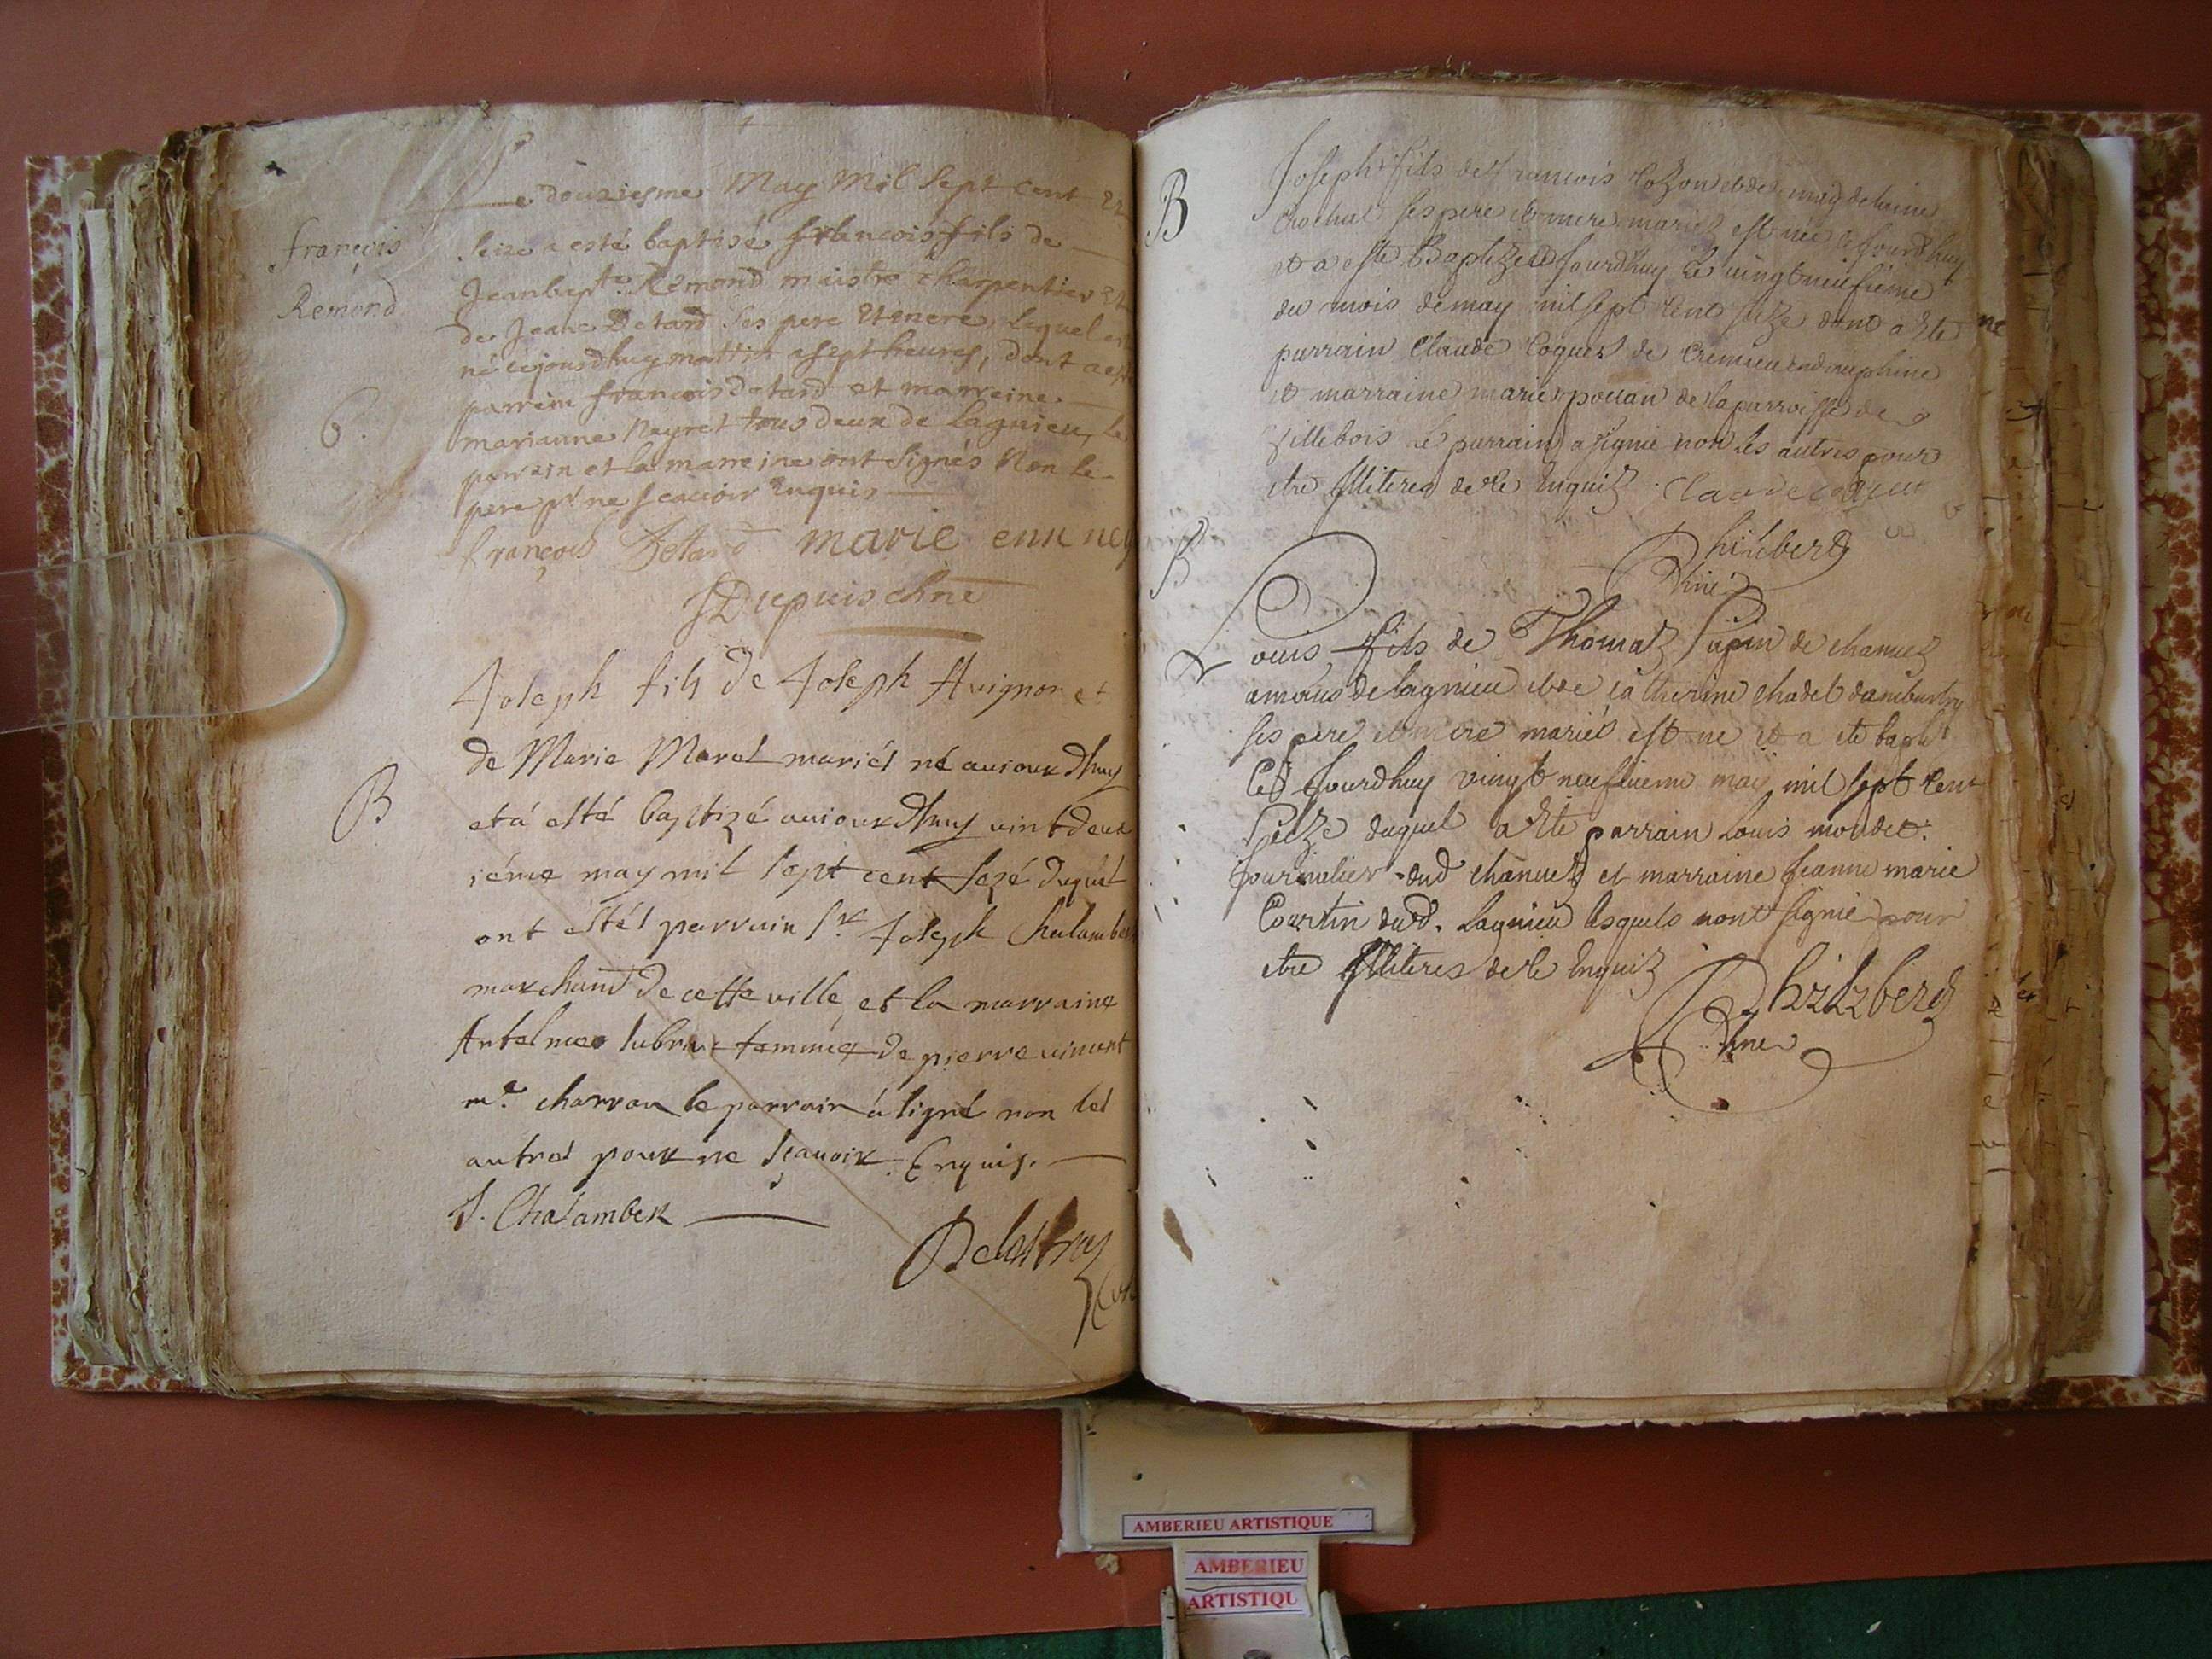 Le douziesme May Mil Sept Cent et
seize a esté baptisé francois fils de
françois
Remond
Jeanbapt.e Remond maistre charpentier et
de Jeane Detard ses pere et mere, lequel est
né cejourdhuy mattin a sept heures, dont a esté
parrein francois Detard et marreine
B.
marianne Neyret tous deux de Lagnieu, le
parrein et la marreine ont signés Non le
pere p.r ne scauoir Enquis
françois Detard marie enne ney
Dupuis
Joseph fils de Joseph Auignon et
de Marie Maret mariés né auiourdhuy
B
et à esté baptizé auiourdhuy vint deux
iéme may mil sept cent sezé duquél
ont estél parrain S.r Joseph Chalamber
marchand de cette ville, et la marraine
Antelmee femme de pierre vinent
m.e charron le parrain à signé non les
autres pour ne sçauoir. Enquis.
J. Chalamber
B
Joseph fils de francois Cozon et de magdeleine
Crochat ses pere et mere mariez est née ce jourdhuy
et a este Baptizé ce jourdhuy le vingt neufieme
du mois de may mil sept cent seize dont a Ete
parrain Claude Coques de Cremieu en dauphine
et marraine marie pouan de la parroisse de
Villebois le parrain a signé non les autres pour
etre Illiteres de ce Enquis Claude coques
Philibert
B
Louis fils de Thomas Pupin de chanuez
amans de lagnieu et de catherine chadel dambutrix
ses pere et mere mariés est ne et a ete bapt
Ce jourdhuy vingt neufuieme may mil sept cent
Seize duquel a Ete parrain Louis mondet
journalier dud chanuez et marraine Jeanne marie
Courtin dud. Lagnieu lesquels nont signé pour
etre Illiteres de ce Enquis
Philibert
AMBERIEU ARTISTIQUE
AMBERIEU
ARTISTIQU